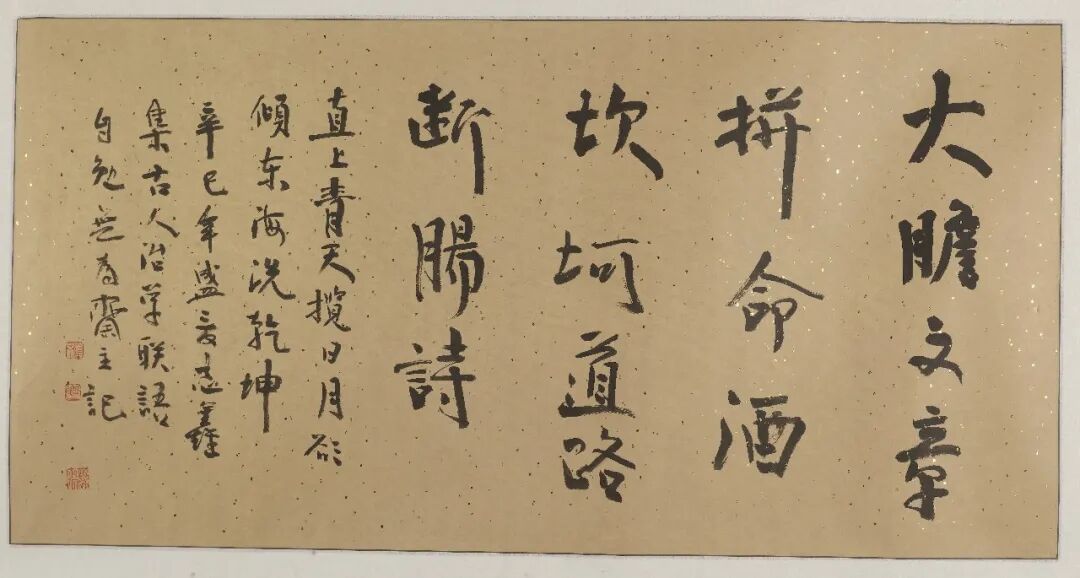 大膽文章
拼命酒
坎坷道路
断腸詩
直上青天揽日月欲
倾东海洗乾坤
辛巳年盛夏志鑫
集古人治学联語
自勉無為齋主記